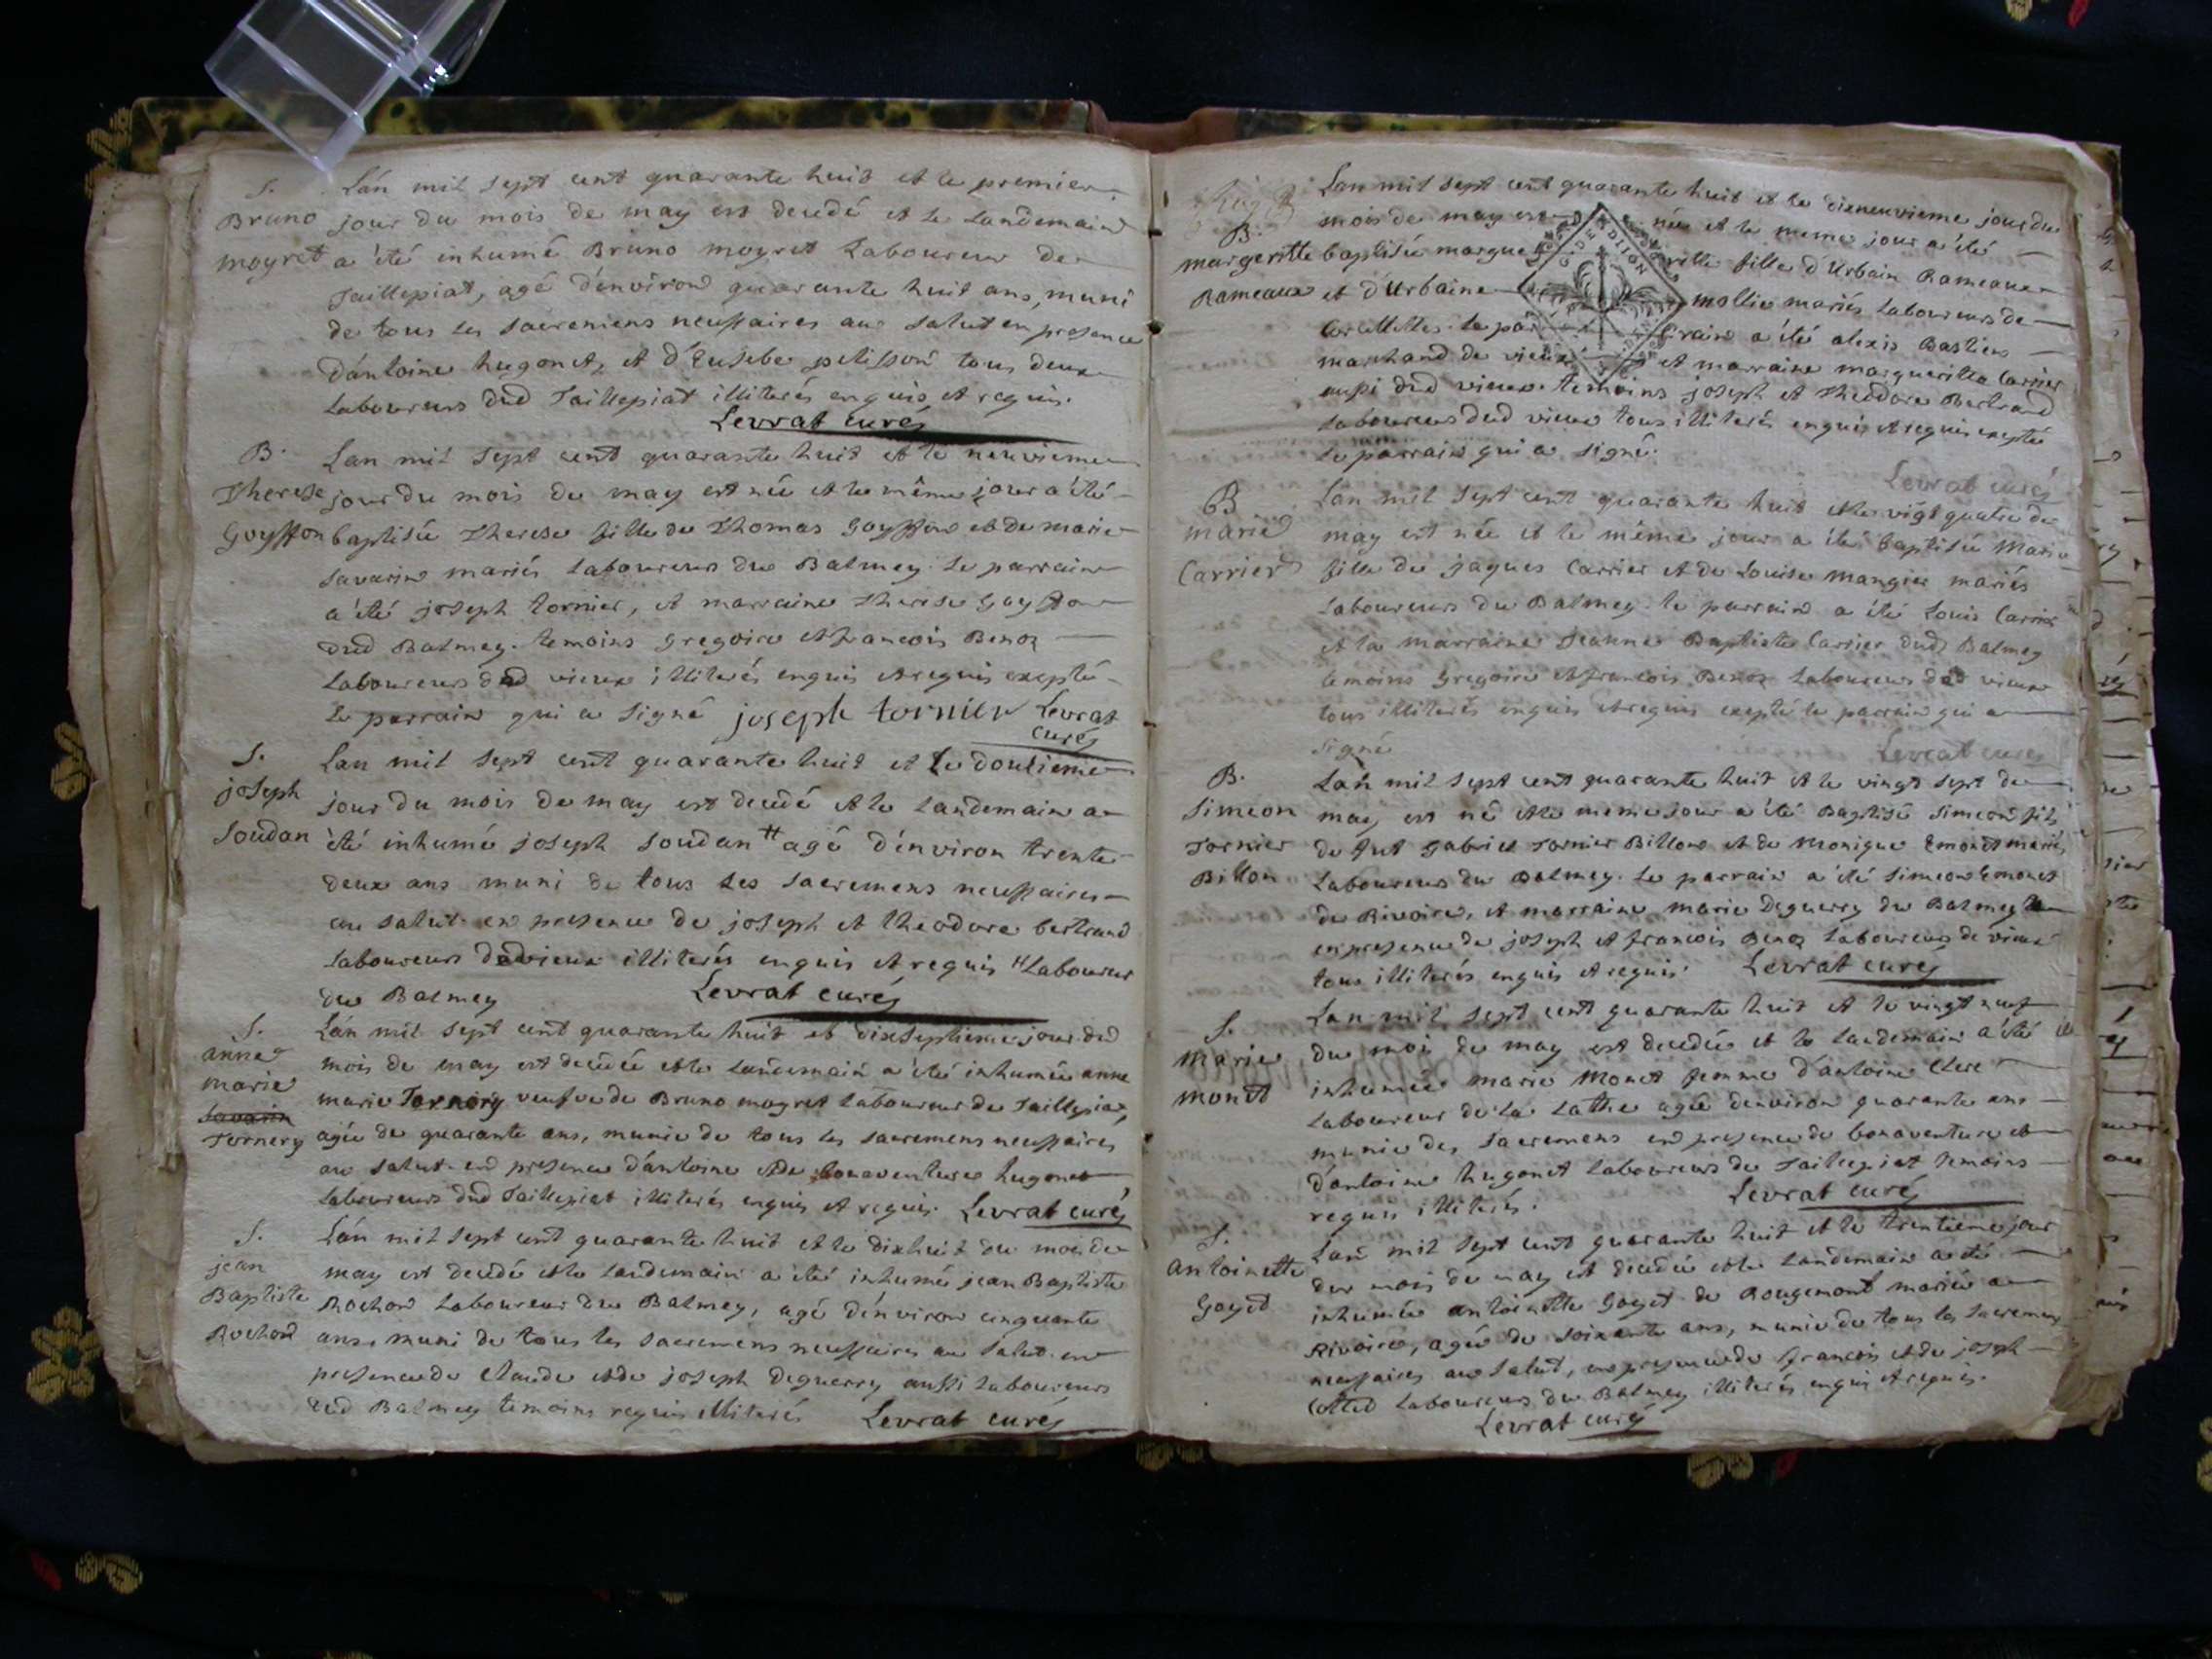 S.
Bruno
moyret
L'an mil sept cent quarante huit et le premier
jour du mois de may est decedé et le landemain
a été inhumé Bruno moyret laboureur de
Taillepiat, agé d'environ quarante huit ans, muni
de tous les sacremens necessaires au salut en presence
d'antoine hugonet, et d'Eusebe pelisson tous deux
laboureurs dud Taillepiat illiterés enquis et requis.
Levrat curé
B.
Therese
Goysson
Lan mil sept cent quarante huit et le neuvieme
jour du mois de may est née et le même jour a été
baptisée Therese fille de Thomas Goysson et de marie
savarin mariés laboureurs du Balmey. le parrain
a été joseph tornier, et marraine Therese Goysson
dud Balmey. temoins gregoire et francois Benoz
laboureurs dud vieux illiterés enquis et requis excepté
le parrain qui a signé joseph tornier Levrat
curé
S.
joseph
soudan
Lan mil sept cent quarante huit et le douzieme
jour du mois de may est decedé et le landemain a
été inhumé joseph soudan # agé d'environ trente
deux ans muni de tous les sacremens necessaires
au salut en presence de joseph et theodore bertrand
laboureurs de vieux illiterés enquis et requis # laboureur
du Balmey Levrat curé
S.
anne
marie
savarin
Tornery
L'an mil sept cent quarante huit et dixseptieme jour dud
mois de may est decedée et le landemain a été inhumée anne
marie Tornery veufve de Bruno moyret laboureur de Taillepiat,
agée de quarante ans, munie de tous les sacremens necessaires
au salut en presence d'antoine et de bonaventure hugonet
laboureurs dud Taillepiat illiterés enquis et requis. Levrat curé
S.
jean
Baptiste
Rochon
L'an mil sept cent quarante huit et le dixhuit du mois de
may est decedé et le landemain a été inhumé jean Baptiste
Rochon laboureur du Balmey, agé d'environ cinquante
ans, muni de tous les sacremens necessaires au salut en
presence de Claude et de joseph Deguerry aussi laboureurs
dud Balmey temoins requis illiterés Levrat curé
B.
margeritte
Rameaux
Lan mil sept cent quarante huit et le dixneuvieme jour du
mois de may est née et le meme jour a été
baptisée margueritte fille d'Urbain Rameaux
et d'Urbaine mollie mariés laboureurs de
le parrain a été alexis Bastien
marchand de vieux et marraine margueritte Carrier
aussi dud vieux. temoins joseph et theodore Bertrand
laboureurs dud vieux tous illiterés enquis et requis excepté
le parrain qui a signé.
Levrat curé
B
marie
Carrier
Lan mil sept cent quarante huit et le vigt quatre de
may est née et le même jour a été baptisée Marie
fille de jaques Carrier et de Louise mangier mariés
laboureurs du Balmey. le parrain a été Louis Carrier
et la marraine jeanne Baptiste Carrier dud Balmey
temoins gregoire et francois Benoz laboureurs dud vieux
tous illiterés enquis et requis excepté le parrain qui a
signé
Levrat curé
B.
simeon
Tornier
Billon
Lan mil sept cent quarante huit et le vingt sept de
may est né et le meme jour a été Baptisé simeon fils
de gabriel Tornier Billon et de Monique Emonet mariés
laboureurs du Balmey. le parrain a été simeon Emonet
de Rivoire, et marraine marie Deguerry du Balmey
en presence de joseph et francois Benoz laboureurs de vieux
tous illiterés enquis et requis. Levrat curé
S.
marie
monet
Lan mil sept cent quarante huit et le vingt neuf
du moi de may est decedée et le landemain a été
inhumée marie Monet femme d'antoine Clerc
laboureur de la agée d'environ quarante ans
munie des sacremens en presence de bonaventure et
d'antoine hugonet laboureurs de Taillepiat temoins
requis illiterés. Levrat curé
S.
antoinette
Goyet
Lan mil sept cent quarante huit et le trentieme jour
du mois de may est decedée et le landemain a été
inhumée antoinette Goyet de Rougemont mariée a
Rivoire, agée de soixante ans, munie de tous les sacremens
necessaires au salut, en presence de francois et de joseph
laboureurs du Balmey illiterés enquis et requis.
Levrat curé